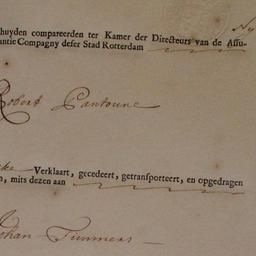 Ny
huyden compareerden ter Kamer der Directeurs van de Assu-
antie Compagny deser Stad Rotterdam
Robert Pantoune
Verklaart, gecedeert, getransporteert, en opgedragen
n, mits dezen aan
Johan Timmers